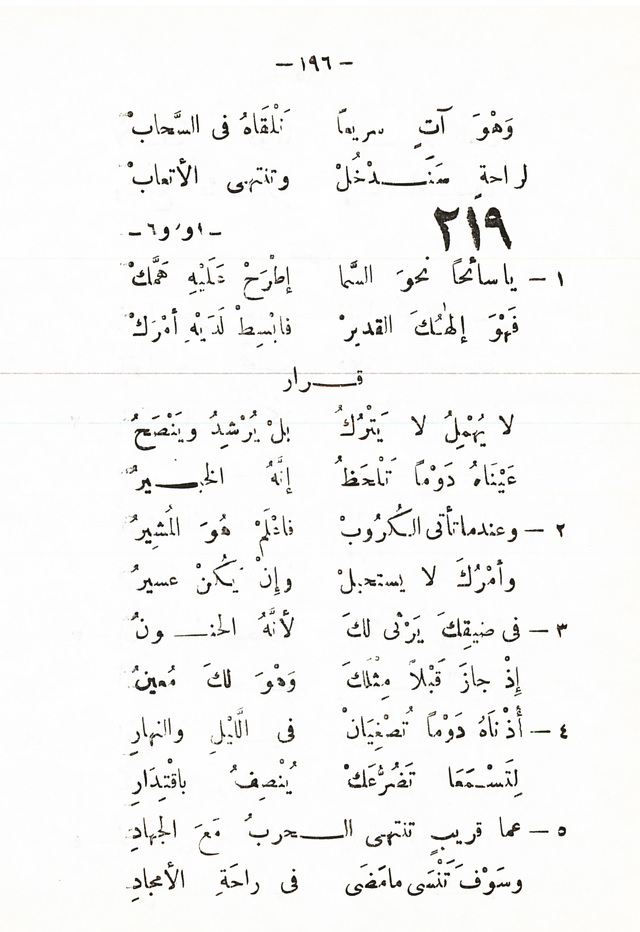 — ١٩٦ —
وَهْوَ آتٍ سريعًا نَلْقَاهُ فى السَّحابْ
لراحةٍ سَنَـــدْخُلْ وتنتهى الأتعابْ
٢١٩
١ — ياسائحًا نحوَ السَّما إطْرَحْ عَلَيْهِ هَمَّكْ
فَهْوَ إلهُـكَ القديرْ فابْسِطْ لَدَيْهِ أمْرَكْ
قـــرار
لا يُهْمِلُ لا يَتْرُكُ بلْ يُرْشِدُ ويَنْصَحُ
عَيْنَاهُ دَوْمًا تَلْحَظُ إنَّهُ الخبـــيرُ
٢ — وعندما تأتى الكُرُوبْ فاعْلَمْ هُوَ المُشِيرُ
وأمْرُكَ لا يستحيلْ وإنْ يَكُنْ عسيرُ
٣ — فى ضيقِكَ يَرْثى لكَ لأنَّهُ الحنـــونُ
إذْ جازَ قَبْلاً مِثْلَكَ وَهْوَ لكَ مُعينُ
٤ — أُذْنَاهُ دَوْمًا تُصْغِيَانْ فى اللَّيْلِ والنهارِ
لِتَسْـمَعَا تَضَرُّعَكْ يُنْصِفُ باقْتِدَارِ
٥ — عما قريبٍ تنتهى الـــحربُ مَعَ الجهادِ
وسَوْفَ تَنْسَى مامَضَى فى راحَةِ الأمجادِ